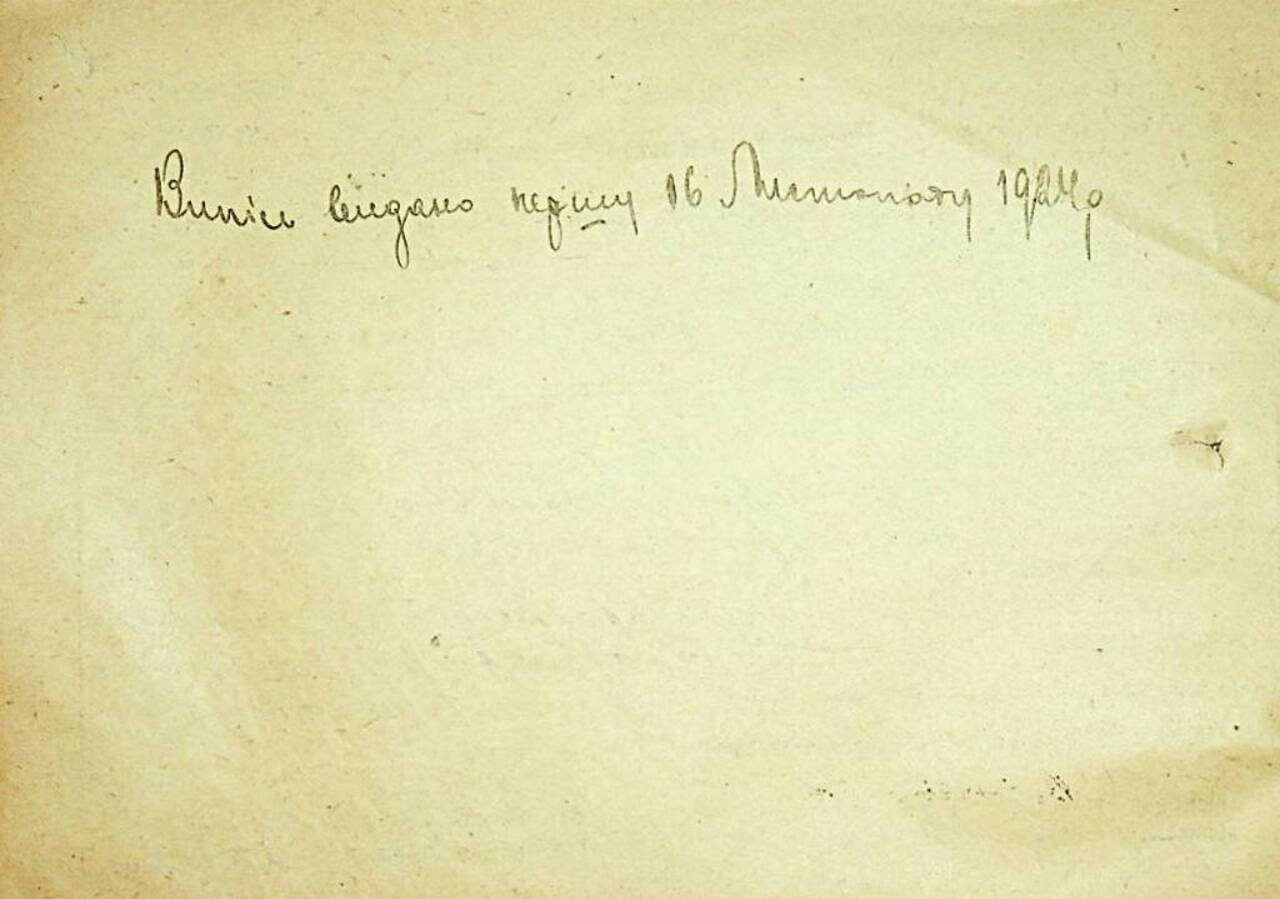 Випіс видано першу 16 Листопаду 1924р